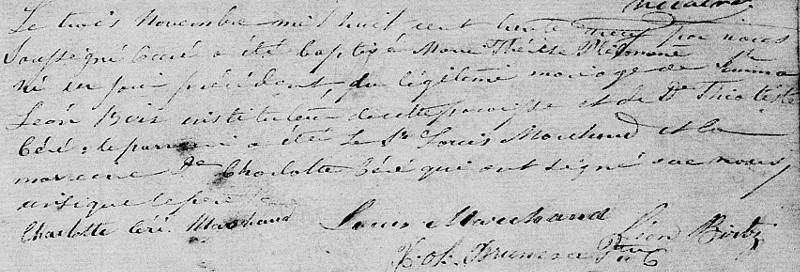 Le trois Novembre mil huit cent trente neuf par nous
soussigné Curé a été baptisé Marie Thérèse Philomène
né un jour précédent, du légitime mariage de Sr
Léon Bois instituteur de cette paroisse et de De Théotiste
Céré; le parrain a été le Sr Louis Marchand et la
marraine De Charlotte Céré qui ont signé avec nous
ainsi que le père
Charlotte Céré Marchand Louis Marchand Léon
Ptre